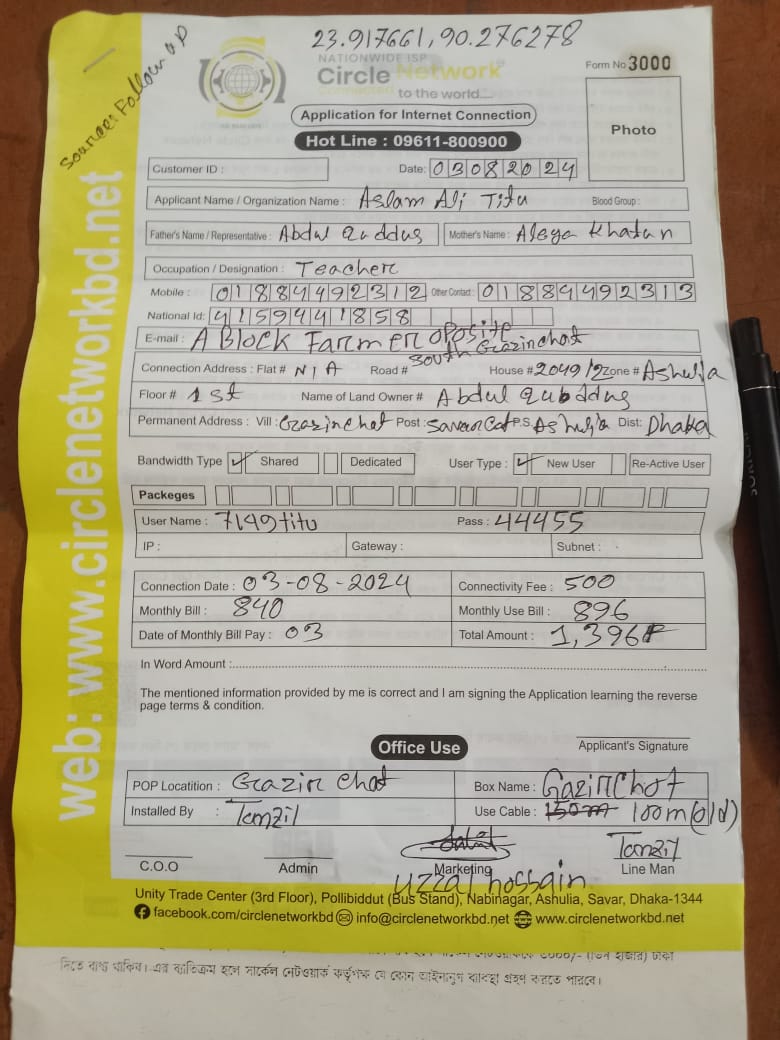 23.917661, 90.276278
Sources Follow up
NATIONWIDE ISP
Circle Network
Connected to the world....
Form No 3000
Application for Internet Connection
Photo
Hot Line : 09611-800900
Customer ID :
Date: 03082024
Applicant Name / Organization Name : Aslam Ali Titu Blood Group :
Father's Name / Representative : Abdul Quddus Mother's Name : Aleya Khatun
Occupation / Designation : Teacher
Mobile : 01884492312 Other Contact : 01884492313
National Id: 4159441858
E-mail : A Block Farmer oposite
South Gazirchot
Connection Address : Flat # N/A Road # House # 2049/2 Zone # Ashulia
Floor # 1st Name of Land Owner # Abdul Qubddus
Permanent Address : Vill : Gazirchot Post : Savar Cat P.S. Ashulia Dist: Dhaka
Bandwidth Type ✓ Shared Dedicated User Type : ✓ New User Re-Active User
Packeges
User Name : 7149titu Pass : 44455
IP : Gateway : Subnet :
Connection Date : 03-08-2024 Connectivity Fee : 500
Monthly Bill : 840 Monthly Use Bill : 896
Date of Monthly Bill Pay : 03 Total Amount : 1,396
In Word Amount :
The mentioned information provided by me is correct and I am signing the Application learning the reverse
page terms & condition.
Applicant's Signature
Office Use
POP Locatition : Gazir Chot Box Name : Gazir Chot
Installed By : Tamzil Use Cable : 150m 100m (old)
Tamzil
C.O.O Admin Marketing Line Man
Uzzal hossain
Unity Trade Center (3rd Floor), Pollibiddut (Bus Stand), Nabinagar, Ashulia, Savar, Dhaka-1344
facebook.com/circlenetworkbd info@circlenetworkbd.net www.circlenetworkbd.net
web: www.circlenetworkbd.net
৩০০০/- (তিন হাজার) টাকা
দিতে বাধ্য থাকিব। এর ব্যতিক্রম হলে সার্কেল নেটওয়ার্ক কর্তৃপক্ষ যে কোন আইনানুগ ব্যবস্থা গ্রহণ করতে পারবে।